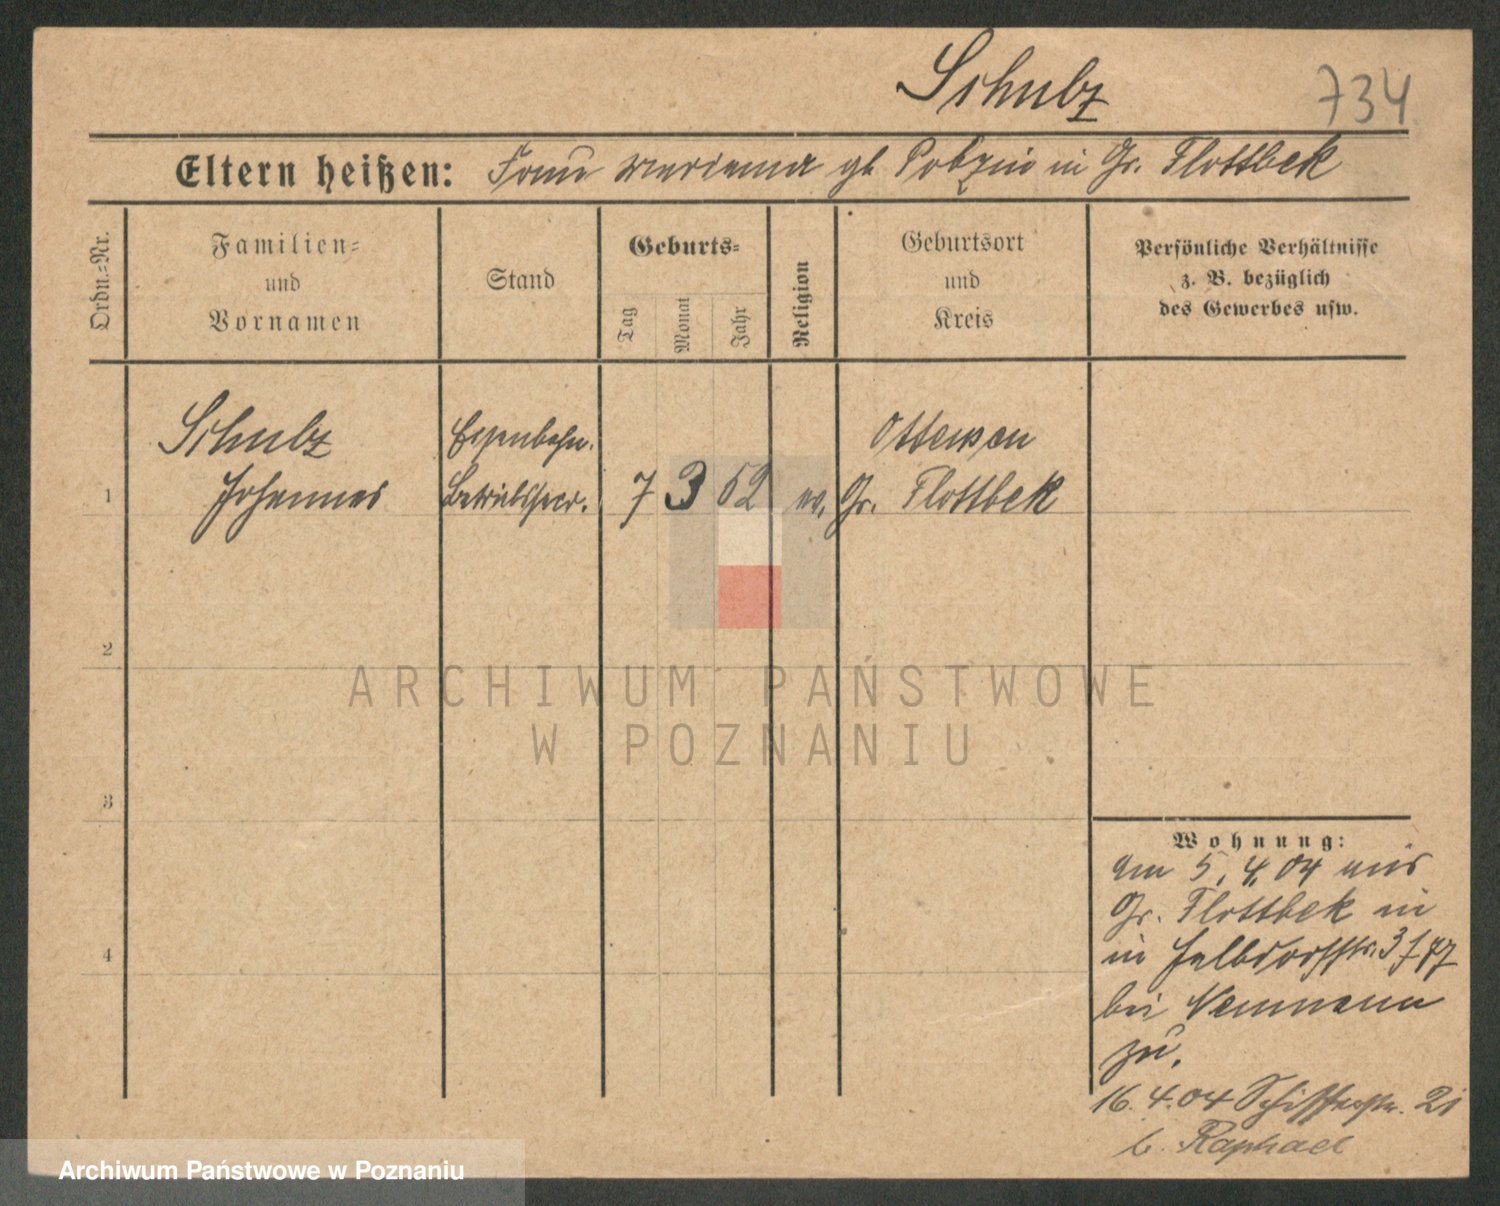 Schulz
734
Eltern heißen: Frau Marianna gb. Pobzin in Gr. Flottbek
Ordn.-Nr.
Familien-
und
Vornamen
Stand
Geburts-
Tag
Monat
Jahr
Religion
Geburtsort
und
Kreis
Persönliche Verhältnisse
z. B. bezüglich
des Gewerbes usw.
Schulz
Johannes
Eisenbahn-
Betriebssecr.
1
7 3 52
ev.
Ottensen
Gr. Flottbek
2
ARCHIWUM PAŃSTWOWE
W POZNANIU
3
4
Wohnung:
Am 5. 4. 04 aus
Gr. Flottbek in
in
bei Neumann
zu.
16. 4. 04 Schifferstr. 21
b. Raphael
Archiwum Państwowe w Poznaniu